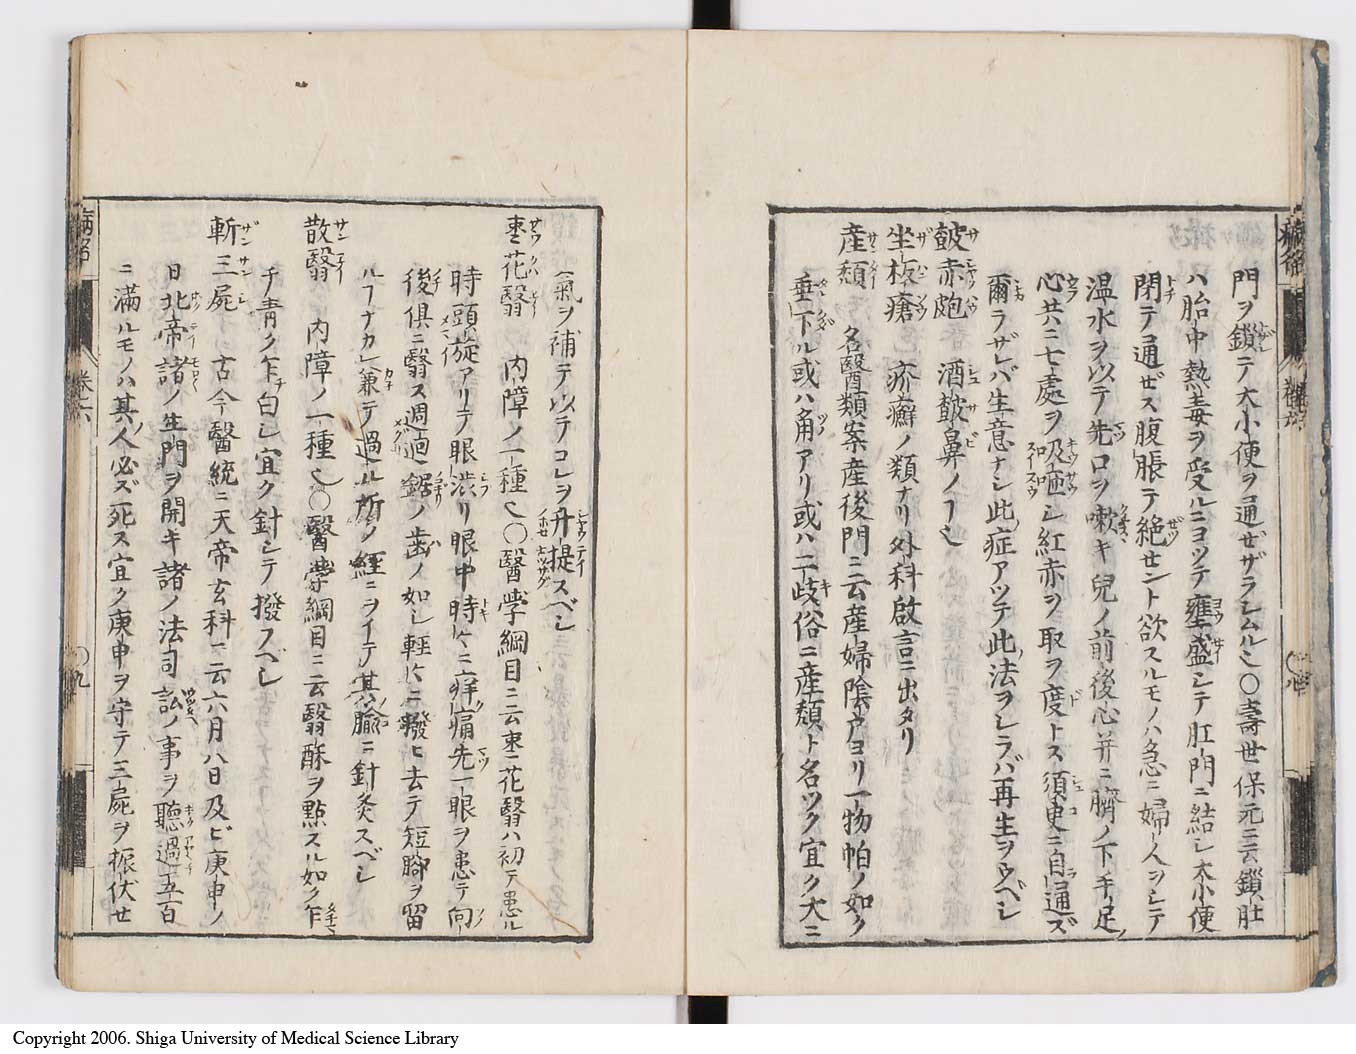 門ヲ鎖テ大小便ヲ通ゼザラシムル也〇壽世保元ニ云鎖肚
ハ胎中熱毒ヲ受ルニヨツテ壅盛シテ肛門ニ結シ大小便
閉テ通ゼス腹脹テ絶セント欲スルモノハ急ニ婦人ヲシテ
温水ヲ以テ先口ヲ嗽キ兒ノ前後心并ニ臍ノ下手足
心共ニ七處ヲ吸咂シ紅赤ヲ取ヲ度トス須臾ニ自通ズ
爾ラザレバ生意ナシ此症アツテ此法ヲシラバ再生ヲウベシ
皷赤皰 酒皷鼻ノ丁也
坐板瘡 疥癬ノ類ナリ外科啟言ニ出タリ
産頽 名醫類案産後門ニ云産婦陰戸ヨリ一物帕ノ如ク
垂下ル或ハ角アリ或ハ二岐俗ニ産頽ト名ツク宜ク大ニ
氣ヲ補テ以テコレヲ升提スベシ
棗花翳 内障ノ一種也〇醫學綱目ニ云棗花翳ハ初テ患ル
時頭旋アリテ眼澁リ眼中時々ニ痒痛先一眼ヲ患テ向
後俱ニ翳ス週迴鋸ノ歯ノ如シ輕々ニ撥ヒ去テ短脚ヲ留
ル丁ナカレ兼テ過ル所ノ經ニヲイテ其腧ニ針灸スベシ
散翳 内障ノ一種也〇醫學綱目ニ云翳酥ヲ點スル如ク乍
チ青ク乍チ白シ宜ク針シテ撥フベシ
斬三屍 古今醫統ニ天帝玄科ニ云六月八日及ビ庚申ノ
日北帝諸ノ生門ヲ開キ諸ノ法司訟ノ事ヲ聽過五百
ニ滿ルモノハ其人必ズ死ス宜ク庚申ヲ守テ三屍ヲ振伏せ
病名
卷六
〇九
Copyright 2006. Shiga University of Medical Science Library